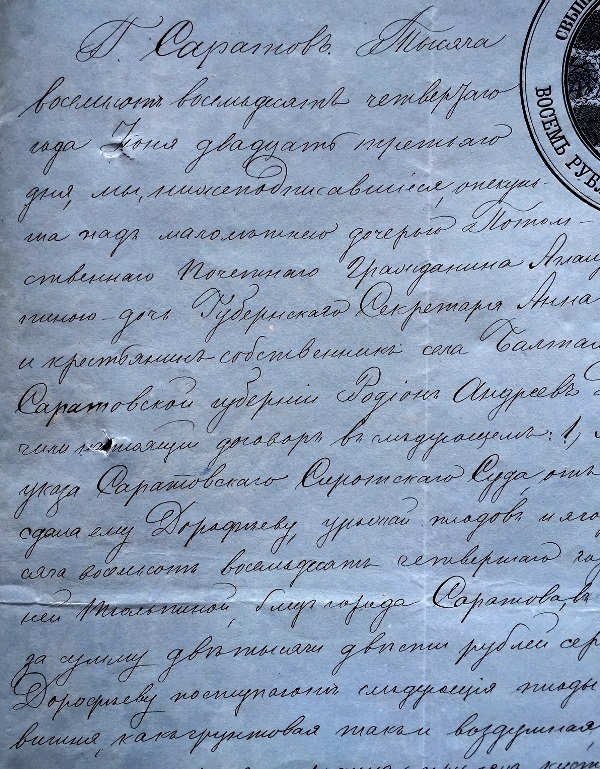 СВЫШ
ВОСЕМЬ РУБЛ
Г. Саратовъ. Тысяча
восемьсотъ восемьдесятъ четвертаго
года Іюня двадцать третьяго
дня, мы, нижеподписавшіеся, опекун-
ша надъ малолѣтнею дочерью Потом-
ственнаго Почетнаго Гражданина
дочь Губернскаго Секретаря Анна
и крестьянинъ собственникъ села Балтай
Саратовской губерніи Родіонъ Андреевъ
настоящій договоръ въ слѣдующемъ: 1,
указа Саратовскаго Сиротскаго Суда, от
сдала ему Дорофѣеву, урожай плодовъ и яго
сяча восемьсотъ восемьдесятъ четвертаго го
ней близь города Саратова, в
за сумму двѣ тысячи двѣсти рублей сер
Дорофѣеву поступаютъ слѣдующія плоды
вишня, какъ грунтовая такъ и воздушная,